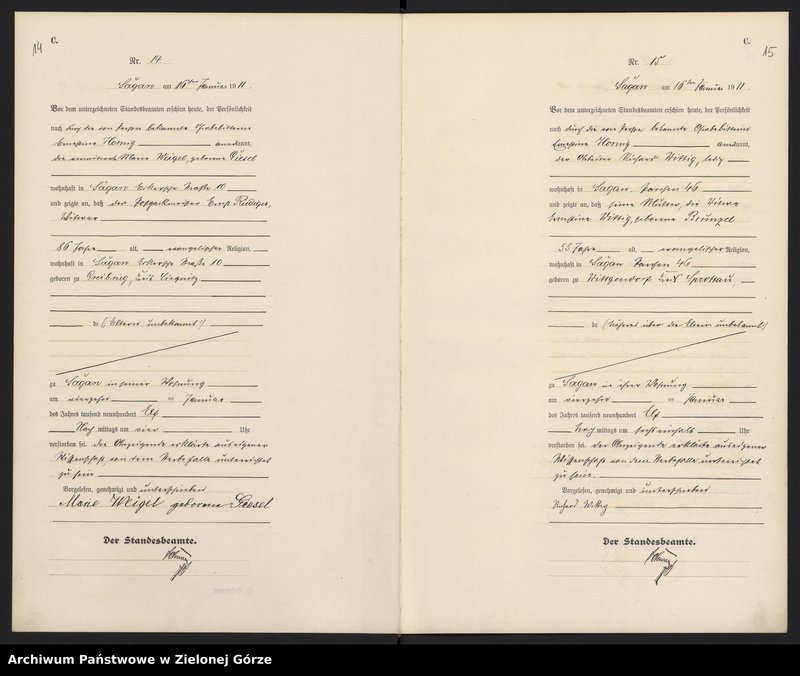 14
C.
Nr. 14.
Sagan am 16ten Januar 1911.
Vor dem unterzeichneten Standesbeamten erschien heute, der Persönlichkeit
nach durch die von Person bekannte
Ernestine Hornig anerkannt,
die Marie Weigel, geborene
wohnhaft in Sagan Straße 10
und zeigte an, daß der Ernst
86 Jahre alt, evangelischer Religion,
wohnhaft in Sagan Straße 10
geboren zu Kreis Liegnitz
de (Eltern unbekannt)
zu Sagan in seiner Wohnung
am vierzehn im Januar
des Jahres tausend neunhundert Elf
Nach mittags um vier Uhr
verstorben sei. die Anzeigende erklärte aus eigener
Wissenschaft von dem Sterbefalle unterrichtet
zu sein
Vorgelesen, genehmigt und unterschrieben
Marie Weigel geborene
Der Standesbeamte.
15
C.
Nr. 15
Sagan am 16ten Januar 1911.
Vor dem unterzeichneten Standesbeamten erschien heute, der Persönlichkeit
nach durch die von Person bekannte
Ernestine Hornig anerkannt,
der Arbeiter Richard Wittig, ledig
wohnhaft in Sagan, 46
und zeigte an, daß seine Mutter, die Witwe
Ernestine Wittig, geborene Brunzel
55 Jahre alt, evangelischer Religion,
wohnhaft in Sagan 46
geboren zu Wittgendorf Kreis Sprottau,
de (Näheres über die Eltern unbekannt)
zu Sagan in ihrer Wohnung
am vierzehn im Januar
des Jahres tausend neunhundert Elf
Nach mittags um Uhr
verstorben sei. der Anzeigende erklärte aus eigener
Wissenschaft von dem Sterbefalle unterrichtet
zu sein.
Vorgelesen, genehmigt und unterschrieben
Richard Wittig
Der Standesbeamte.
Archiwum Państwowe w Zielonej Górze